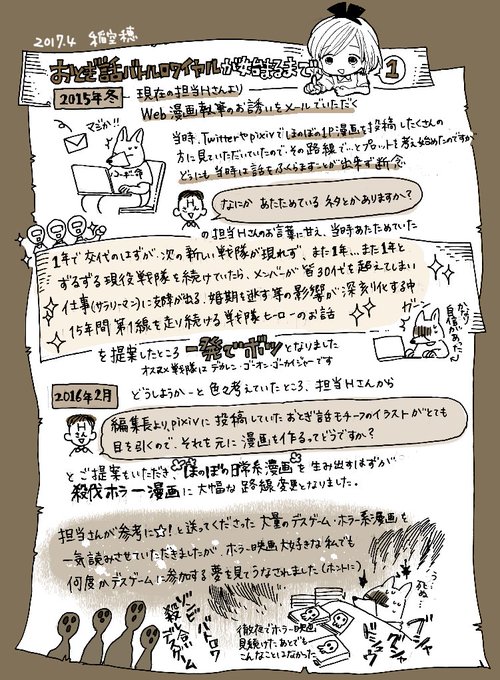 2017.4 稲空穂
おとぎ話バトルロワイヤルが始まるまで
1
2015年冬
現在の担当Hさんより
Web漫画執筆のお誘いをメールでいただく
マジか!!
当時、Twitterやpixivでほのぼの1P漫画を投稿したくさんの
方に見ていただいていたので、その路線で…とプロットを考え始めたのですが
どうにも当時は話をふくらますことが出来ず断念
なにか あたためている ネタとかありますか?
の担当Hさんのお言葉に甘え、当時あたためていた
1年で交代のはずが、次の新しい戦隊が現れず、また1年…また1年と
ずるずる現役戦隊を続けていたら、メンバーが皆30代を超えてしまい
仕事(サラリーマン)に支障が出る、婚期を逃す等の影響が深刻化する中
15年間第1線を走り続ける戦隊ヒーローのお話
ガーン
かなり自信があった
を提案したところ 一発でボツとなりました
オススメ戦隊はデカレン・ゴーオン・ゴーカイジャーです
2016年2月
どうしようかーと色々考えていたところ、担当Hさんから
編集長より、pixivに投稿していたおとぎ話モチーフのイラストがとても
目を引くので、それを元に漫画を作るってどうですか?
とご提案もいただき、ほのぼの日常系漫画を生み出すはずが
殺伐ホラー漫画に大幅な路線変更となりました。
担当さんが参考に☆!と送ってくださった大量のデスゲーム・ホラー系漫画も
一気読みさせていただきましたが、ホラー映画大好きな私でも
何度かデスゲームに参加する夢を見てうなされました(ホントに)
う…死ぬ…
ゾンビ
バトロワ
殺し合い
デスゲーム
徹夜でホラー映画
見続けたあとでも
こんなことはなかった
ドシュッ
グシャ
ブシャ